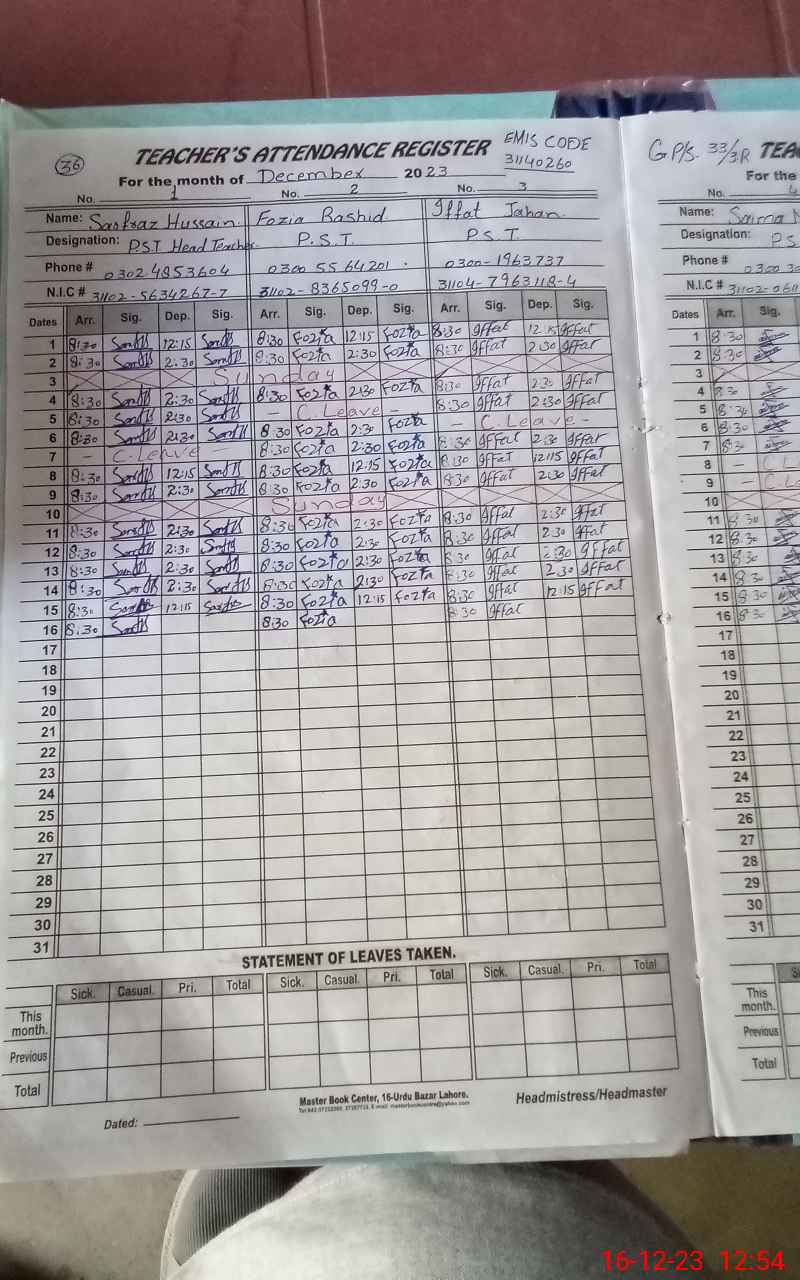 36
TEACHER'S ATTENDANCE REGISTER
EMIS CODE
31140260
For the month of December 2023
No. 1 No. 2 No. 3
Name: Sarfraz Hussain Fozia Rashid Iffat Jahan
Designation: P.S.T Head Teacher P.S.T. P.S.T.
Phone # 03024853604 0300 5564201 0300-1963737
N.I.C # 31102-5634267-7 31102-8365099-0 31104-7963118-4
Dates Arr. Sig. Dep. Sig. Arr. Sig. Dep. Sig. Arr. Sig. Dep. Sig.
1 8:30 12:15 8:30 Fozia 12:15 Fozia 8:30 Iffat 12:15 Iffat
2 8:30 2:30 8:30 Fozia 2:30 Fozia 8:30 Iffat 2:30 Iffat
3 Sunday
4 8:30 2:30 8:30 Fozia 2:30 Fozia 8:30 Iffat 2:30 Iffat
5 8:30 2:30 - C.Leave - 8:30 Iffat 2:30 Iffat
6 8:30 2:30 8:30 Fozia 2:30 Fozia - C.Leave -
7 - C.Leave - 8:30 Fozia 2:30 Fozia 8:30 Iffat 2:30 Iffat
8 8:30 12:15 8:30 Fozia 12:15 Fozia 8:30 Iffat 12:15 Iffat
9 8:30 2:30 8:30 Fozia 2:30 Fozia 8:30 Iffat 2:30 Iffat
10 Sunday
11 8:30 2:30 8:30 Fozia 2:30 Fozia 8:30 Iffat 2:30 Iffat
12 8:30 2:30 8:30 Fozia 2:30 Fozia 8:30 Iffat 2:30 Iffat
13 8:30 2:30 8:30 Fozia 2:30 Fozia 8:30 Iffat 2:30 Iffat
14 8:30 2:30 8:30 Fozia 2:30 Fozia 8:30 Iffat 2:30 Iffat
15 8:30 12:15 8:30 Fozia 12:15 Fozia 8:30 Iffat 12:15 Iffat
16 8:30 8:30 Fozia 8:30 Iffat
17
18
19
20
21
22
23
24
25
26
27
28
29
30
31
STATEMENT OF LEAVES TAKEN.
Sick. Casual. Pri. Total Sick. Casual. Pri. Total Sick. Casual. Pri. Total
This month.
Previous
Total
Master Book Center, 16-Urdu Bazar Lahore.
Headmistress/Headmaster
Dated:
G.P/S. 33/3R TEA
For the
No. 4
Name: Saima
Designation: PS
Phone # 0300
N.I.C # 31102-0611
Dates Arr. Sig.
1 8:30
2 8:30
3
4 8:30
5 8:30
6 8:30
7 8:30
8 - C L
9 - C.L
10
11 8:30
12 8:30
13 8:30
14 8:30
15 8:30
16 8:30
17
18
19
20
21
22
23
24
25
26
27
28
29
30
31
This month.
Previous
Total
16-12-23 12:54